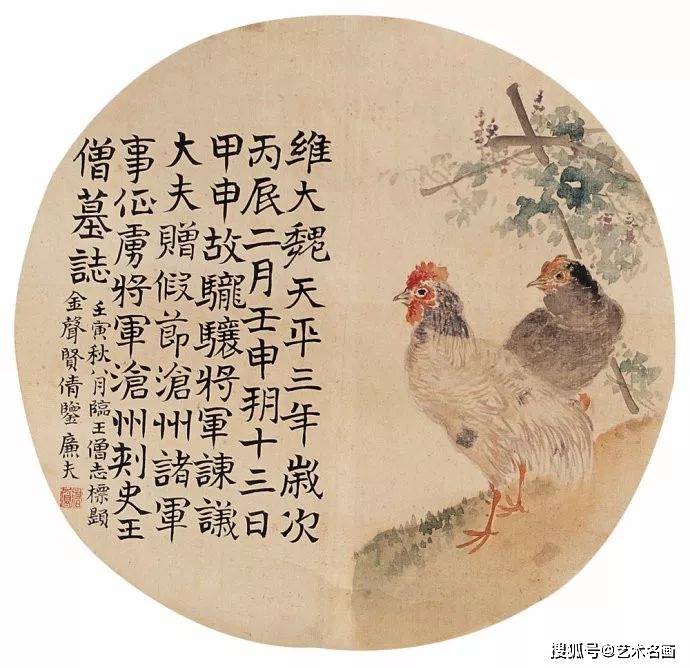 維大魏天平三年歲次
丙辰二月壬申朔十三日
甲申故龍驤將軍諫議
大夫贈假節滄州諸軍
事征虜將軍滄州刺史王
僧墓誌
壬寅秋八月臨王僧志標題
金聲賢倩鑒 廉夫
搜狐号@艺术名画